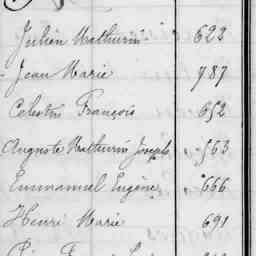 Julien Mathurin 622
Jean Marie 787
Celestin François 652
Auguste Mathurin Joseph 563
Emmanuel Eugène 666
Henri Marie 691